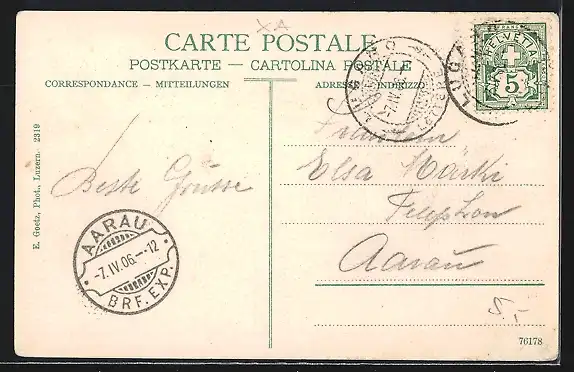 X.A
CARTE POSTALE
POSTKARTE — CARTOLINA POSTALE
CORRESPONDANCE — MITTEILUNGEN
ADRESSE INDIRIZZO
FRANCO
HELVETIA
5
LUGANO
LUGA
Fräulein
Elsa Märki
Telephon
Aarau
Beste Grüsse
AARAU
-7.IV.06.-12
BRF. EXP.
E. Goetz, Phot., Luzern. 2319
5.-
76178